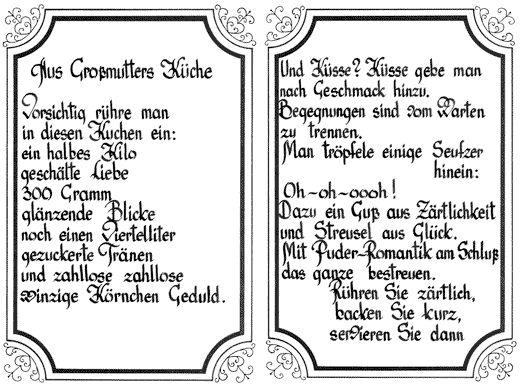 Aus Großmutters Küche
Vorsichtig rühre man
in diesen Kuchen ein:
ein halbes Kilo
geschälte Liebe
300 Gramm
glänzende Blicke
noch einen Viertelliter
gezuckerte Tränen
und zahllose zahllose
winzige Körnchen Geduld.
Und Küsse? Küsse gebe man
nach Geschmack hinzu.
Begegnungen sind vom Warten
zu trennen.
Man tröpfele einige Seufzer
hinein:
Oh-oh-oooh!
Dazu ein Guß aus Zärtlichkeit
und Streusel aus Glück.
Mit Puder-Romantik am Schluß
das ganze bestreuen.
Rühren Sie zärtlich,
backen Sie kurz,
servieren Sie dann